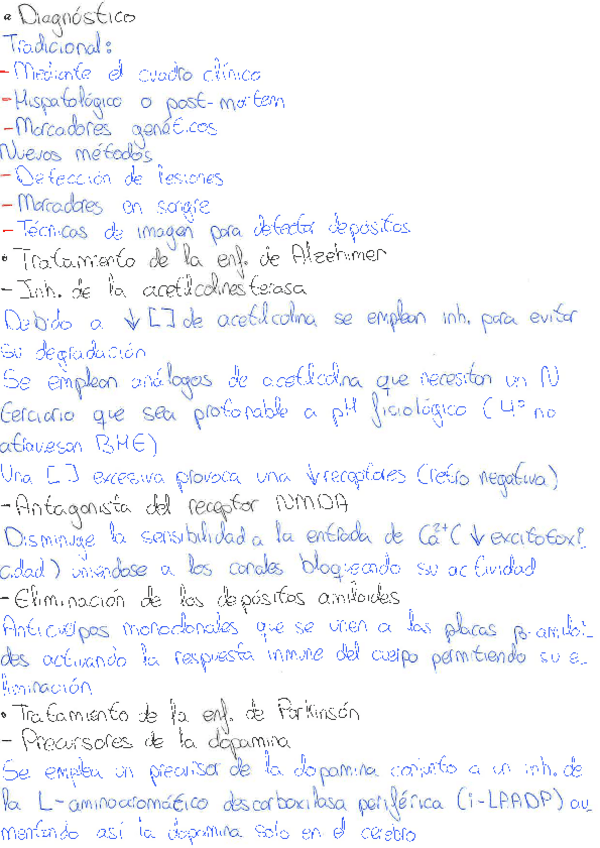 • Diagnóstico
Tradicional:
- Mediante el cuadro clínico
- Hispatológico o post-mortem
- Marcadores genéticos
Nuevos métodos
- Detección de lesiones
- Marcadores en sangre
- Técnicas de imagen para detectar depósitos
• Tratamiento de la enf. de Alzehimer
- Inh. de la acetilcolinesterasa
Debido a ↓ [ ] de acetilcolina se emplean inh. para evitar
su degradación
Se emplean análogos de acetilcolina que necesitan un N
terciario que sea protonable a pH fisiológico (4º no
atraviesan BHE)
Una [ ] excesiva provoca una ↓ receptores (retro negativa)
- Antagonista del receptor NMDA
Disminuye la sensibilidad a la entrada de Ca²⁺ (↓ excitotoxi-
cidad) uniendose a los canales bloqueando su actividad
- Eliminación de los depósitos amiloides
Anticuerpos monoclonales que se unen a las placas β-amiloi-
des activando la respuesta inmune del cuerpo permitiendo su e-
liminación
• Tratamiento de la enf. de Parkinson
- Precursores de la dopamina
Se emplea un precursor de la dopamina conjunto a un inh. de
la L-aminoaromático descarboxilasa periférica (i-LAADP) au-
mentando así la dopamina solo en el cerebro